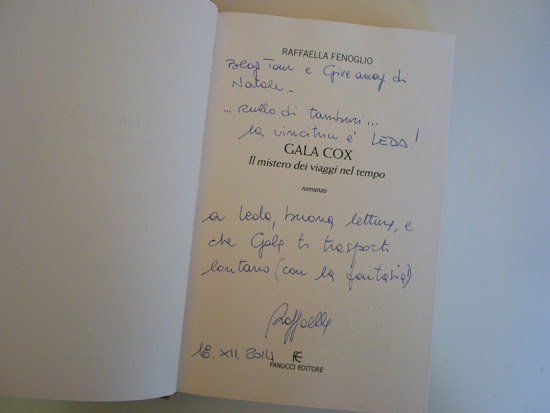 RAFFAELLA FENOGLIO
Blog Tour e Giveaway di
Natale -
... rullo di tamburi ...
la vincitrice è LEDA!
GALA COX
Il mistero dei viaggi nel tempo
romanzo
a Leda, buona lettura, e
che Gala ti trasporti
lontano (con la fantasia!)
Raffaella
18. XII. 2014
FE
FANUCCI EDITORE